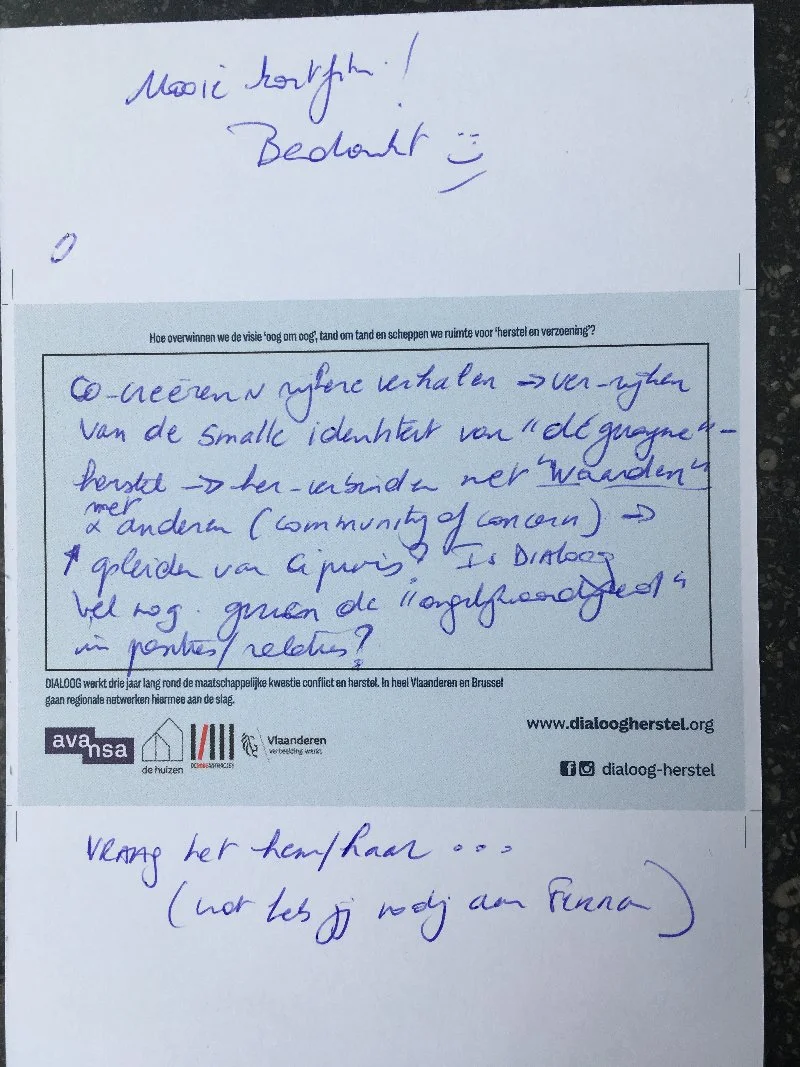 Mooie kortfilm!
Bedankt
Hoe overwinnen we de visie 'oog om oog', tand om tand en scheppen we ruimte voor 'herstel en verzoening'?
Co-creëren rijkere verhalen → ver-rijken
van de smalle identiteit van "de
herstel → her-verbinden met "waarden"
met
& anderen (community of concern) →
opleiden van Is DIALOOG
wel nog. gezien de "ongelijkwaardigheid"
in posities/relaties?
DIALOOG werkt drie jaar lang rond de maatschappelijke kwestie conflict en herstel. In heel Vlaanderen en Brussel
gaan regionale netwerken hiermee aan de slag.
avansa
de huizen
Vlaanderen
verbeelding werkt
www.dialoogherstel.org
dialoog-herstel
VRAAG het hem/haar ...
(wat heb jij nodig aan